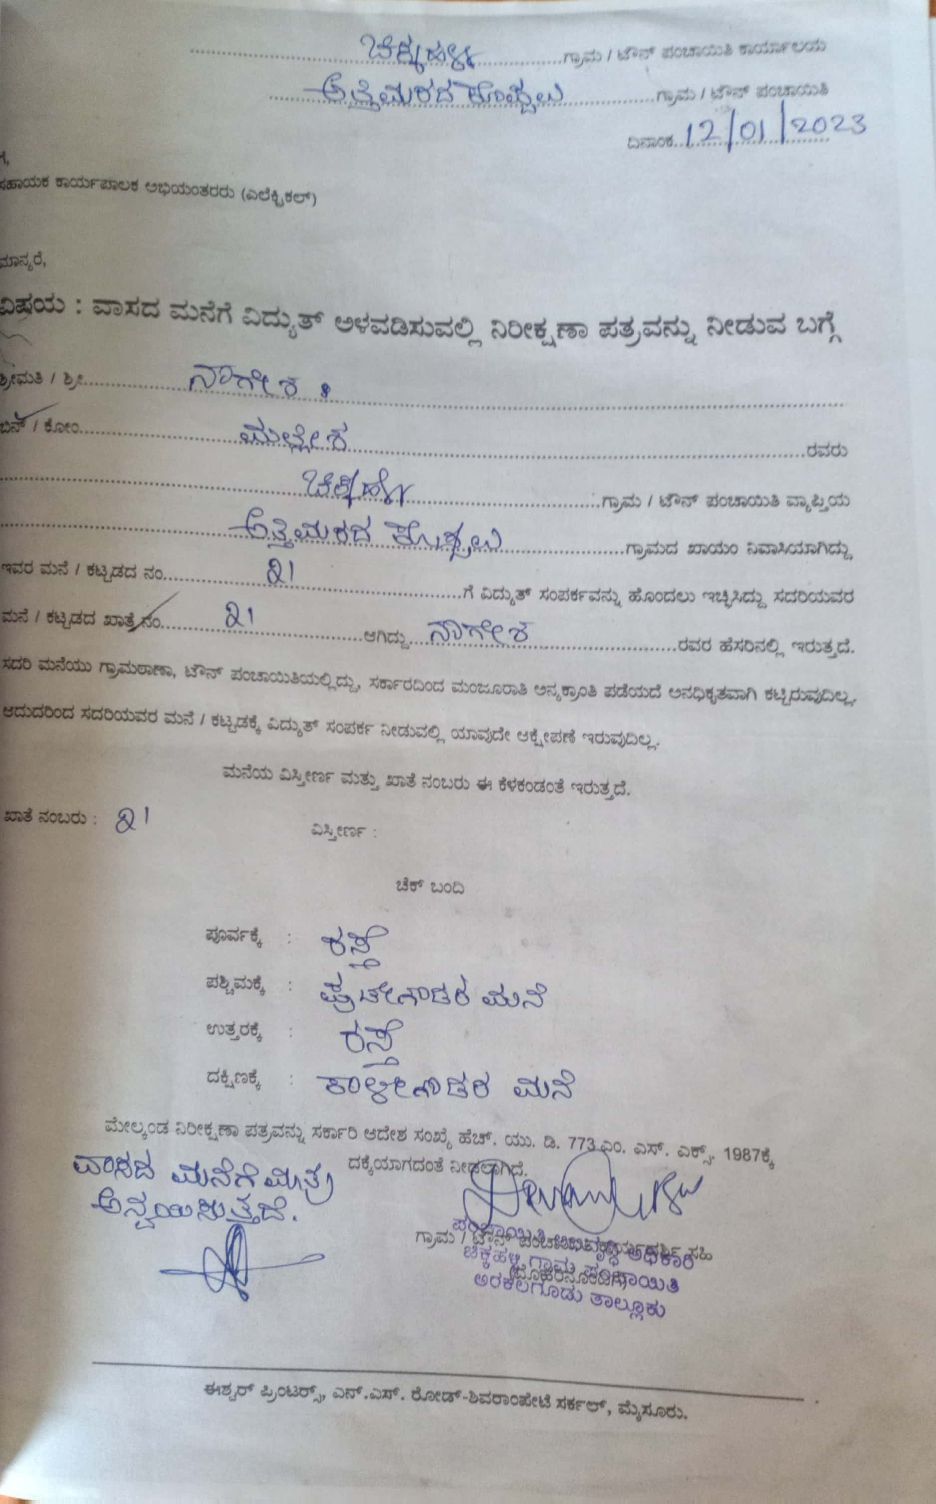 ಚಿಕ್ಕಹಳ್ಳಿ ಗ್ರಾಮ / ಟೌನ್ ಪಂಚಾಯಿತಿ ಕಾರ್ಯಾಲಯ
ಅತ್ತಿಮರದ ಕೊಪ್ಪಲು ಗ್ರಾಮ / ಟೌನ್ ಪಂಚಾಯಿತಿ
ದಿನಾಂಕ 12/01/2023
ಗೆ,
ಸಹಾಯಕ ಕಾರ್ಯಪಾಲಕ ಅಭಿಯಂತರರು (ಎಲೆಕ್ಟ್ರಿಕಲ್)
ಮಾನ್ಯರೆ,
ವಿಷಯ : ವಾಸದ ಮನೆಗೆ ವಿದ್ಯುತ್ ಅಳವಡಿಸುವಲ್ಲಿ ನಿರೀಕ್ಷಣಾ ಪತ್ರವನ್ನು ನೀಡುವ ಬಗ್ಗೆ
ಶ್ರೀಮತಿ / ಶ್ರೀ ನಾಗೇಶ
ಬಿನ್ / ಕೋಂ ಮಲ್ಲೇಶ ರವರು
ಚಿಕ್ಕಹಳ್ಳಿ ಗ್ರಾಮ / ಟೌನ್ ಪಂಚಾಯಿತಿ ವ್ಯಾಪ್ತಿಯ
ಅತ್ತಿಮರದ ಕೊಪ್ಪಲು ಗ್ರಾಮದ ಖಾಯಂ ನಿವಾಸಿಯಾಗಿದ್ದು
ಇವರ ಮನೆ / ಕಟ್ಟಡದ ನಂ. 21 ಗೆ ವಿದ್ಯುತ್ ಸಂಪರ್ಕವನ್ನು ಹೊಂದಲು ಇಚ್ಛಿಸಿದ್ದು ಸದರಿಯವರ
ಮನೆ / ಕಟ್ಟಡದ ಖಾತೆ ನಂ. 21 ಆಗಿದ್ದು ನಾಗೇಶ ರವರ ಹೆಸರಿನಲ್ಲಿ ಇರುತ್ತದೆ.
ಸದರಿ ಮನೆಯು ಗ್ರಾಮಠಾಣಾ, ಟೌನ್ ಪಂಚಾಯಿತಿಯಲ್ಲಿದ್ದು, ಸರ್ಕಾರದಿಂದ ಮಂಜೂರಾತಿ ಅನ್ಯಕ್ರಾಂತಿ ಪಡೆಯದೆ ಅನಧಿಕೃತವಾಗಿ ಕಟ್ಟಿರುವುದಿಲ್ಲ.
ಆದುದರಿಂದ ಸದರಿಯವರ ಮನೆ / ಕಟ್ಟಡಕ್ಕೆ ವಿದ್ಯುತ್ ಸಂಪರ್ಕ ನೀಡುವಲ್ಲಿ ಯಾವುದೇ ಆಕ್ಷೇಪಣೆ ಇರುವುದಿಲ್ಲ.
ಮನೆಯ ವಿಸ್ತೀರ್ಣ ಮತ್ತು ಖಾತೆ ನಂಬರು ಈ ಕೆಳಕಂಡಂತೆ ಇರುತ್ತದೆ.
ಖಾತೆ ನಂಬರು : 21 ವಿಸ್ತೀರ್ಣ :
ಚೆಕ್ ಬಂದಿ
ಪೂರ್ವಕ್ಕೆ : ರಸ್ತೆ
ಪಶ್ಚಿಮಕ್ಕೆ : ಪುಟೇಗೌಡರ ಮನೆ
ಉತ್ತರಕ್ಕೆ : ರಸ್ತೆ
ದಕ್ಷಿಣಕ್ಕೆ : ಕಾಳೇಗೌಡರ ಮನೆ
ಮೇಲ್ಕಂಡ ನಿರೀಕ್ಷಣಾ ಪತ್ರವನ್ನು ಸರ್ಕಾರಿ ಆದೇಶ ಸಂಖ್ಯೆ ಹೆಚ್. ಯು. ಡಿ. 773 ಎಂ. ಎಸ್. ಎಕ್ಸ್. 1987ಕ್ಕೆ
ದಕ್ಕೆಯಾಗದಂತೆ ನೀಡಲಾಗಿದೆ.
ವಾಸದ ಮನೆಗೆ ಮಾತ್ರ
ಅನ್ವಯಿಸುತ್ತದೆ.
ಗ್ರಾಮ / ಟೌನ್ ಪಂಚಾಯಿತಿ ಕಾರ್ಯದರ್ಶಿ ಸಹಿ
ಪಂಚಾಯಿತಿ ಅಭಿವೃದ್ಧಿ ಅಧಿಕಾರಿ
ಚಿಕ್ಕಹಳ್ಳಿ ಗ್ರಾಮ ಪಂಚಾಯಿತಿ
ಅರಕಲಗೂಡು ತಾಲ್ಲೂಕು
ಈಶ್ವರ್ ಪ್ರಿಂಟರ್ಸ್, ಎನ್.ಎಸ್. ರೋಡ್-ಶಿವರಾಂಪೇಟೆ ಸರ್ಕಲ್, ಮೈಸೂರು.